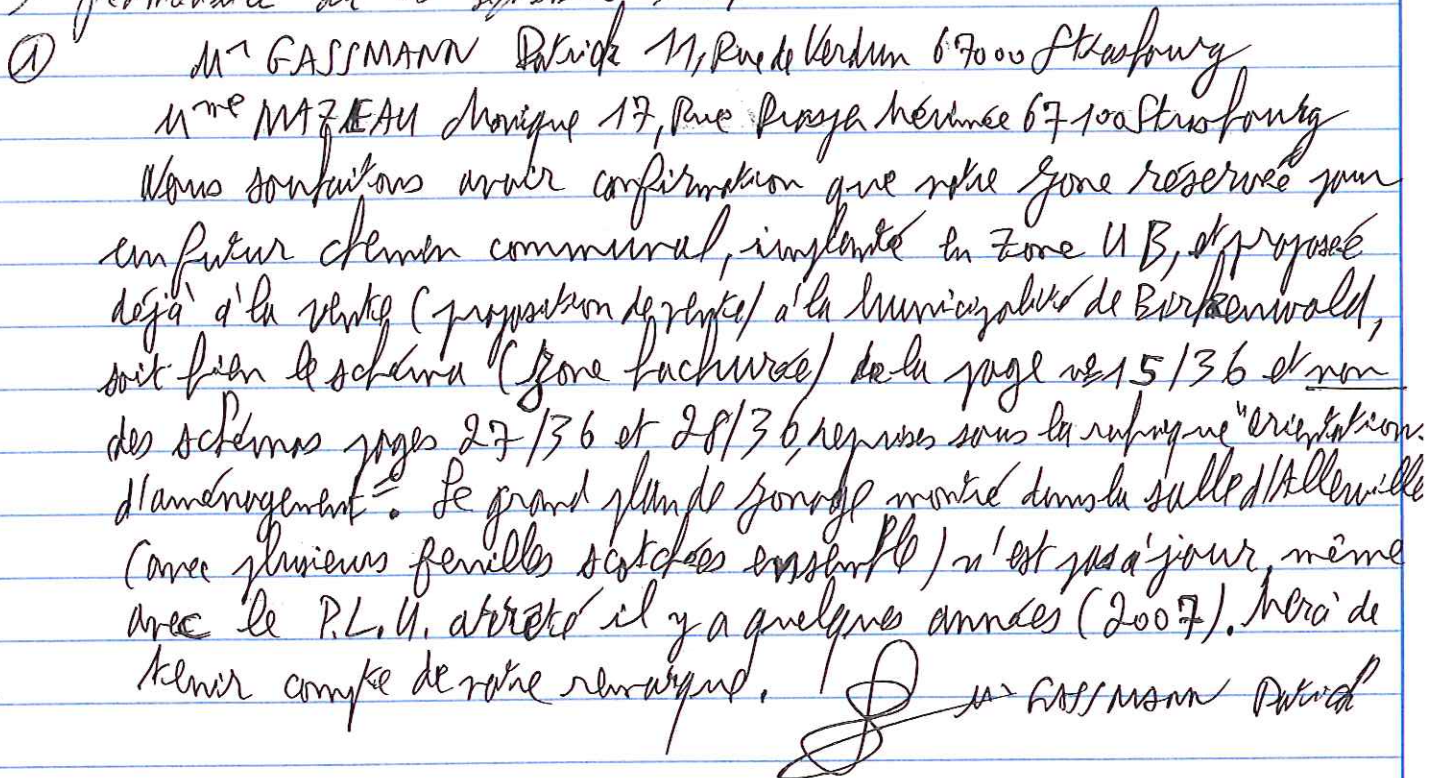 ① Mr GASSMANN Patrick 11, Rue de Verdun 67000 Strasbourg
Mme MAZEAU Monique 17, Rue Prosper Mérimée 67100 Strasbourg
Nous souhaitons avoir confirmation que notre zone réservée pour
un futur chemin communal, implanté en zone UB, et proposée
déjà à la vente (proposition de vente) à la Municipalité de Birkenwald,
soit bien le schéma (zone hachurée) de la page n° 15/36 et non
des schémas pages 27/36 et 28/36, reprises sous la rubrique "orientation
d'aménagement". Le grand plan de zonage montré dans la salle d'Allenwiller
(avec plusieurs feuilles scotchées ensemble) n'est pas à jour, même
avec le P.L.U. arrêté il y a quelques années (2007). Merci de
tenir compte de notre remarque. Mr GASSMANN Patrick